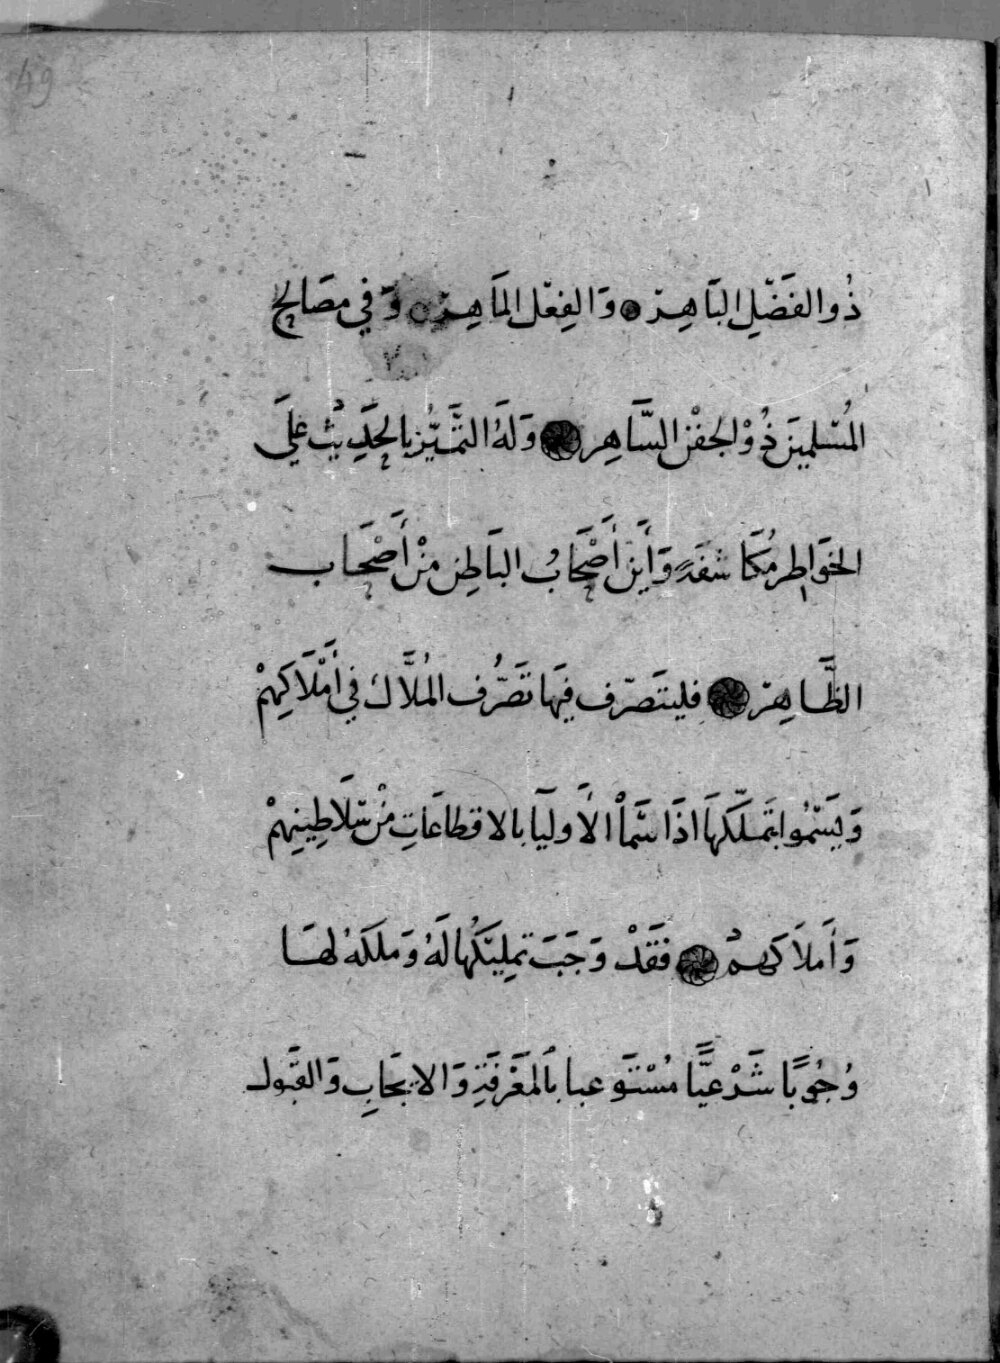 49
ذُو الفَضْلِ البَاهِرْ ۞ وَالفِعْلِ المَاهِرْ ۞ وَفِي مصَالِحِ
المُسْلمِينَ ذُوْ الجفْن السَّاهِر ۞ وَلَهُ التمَّيُّز بالحَدِيْث علَى
الخوَاطِر مُكَاشفَةً وَأَينَ أَصْحَابُ البَاطِن منْ أَصْحَاب
الظَّاهِرْ ۞ فليتَصَرّف فِيهَا تَصَرُّف المُلَّاك فِي أَمْلَاكِهِمْ
وَيَسْمُوا بتَملّكهَا اذَا سَمَاْ الأَوليَآ بالاقطاعَاتِ منْ سَلَاطِينِهِمْ
وَأَملاَكهمْ ۞ فقَدْ وَجَبَ تمليْكُها لَهُ وَملكهُ لهَا
وُجُوبًا شَرْعيًّا مُسْتَوعبا بالمَعْرفَةِ وَالايجَابِ وَالقَبُول